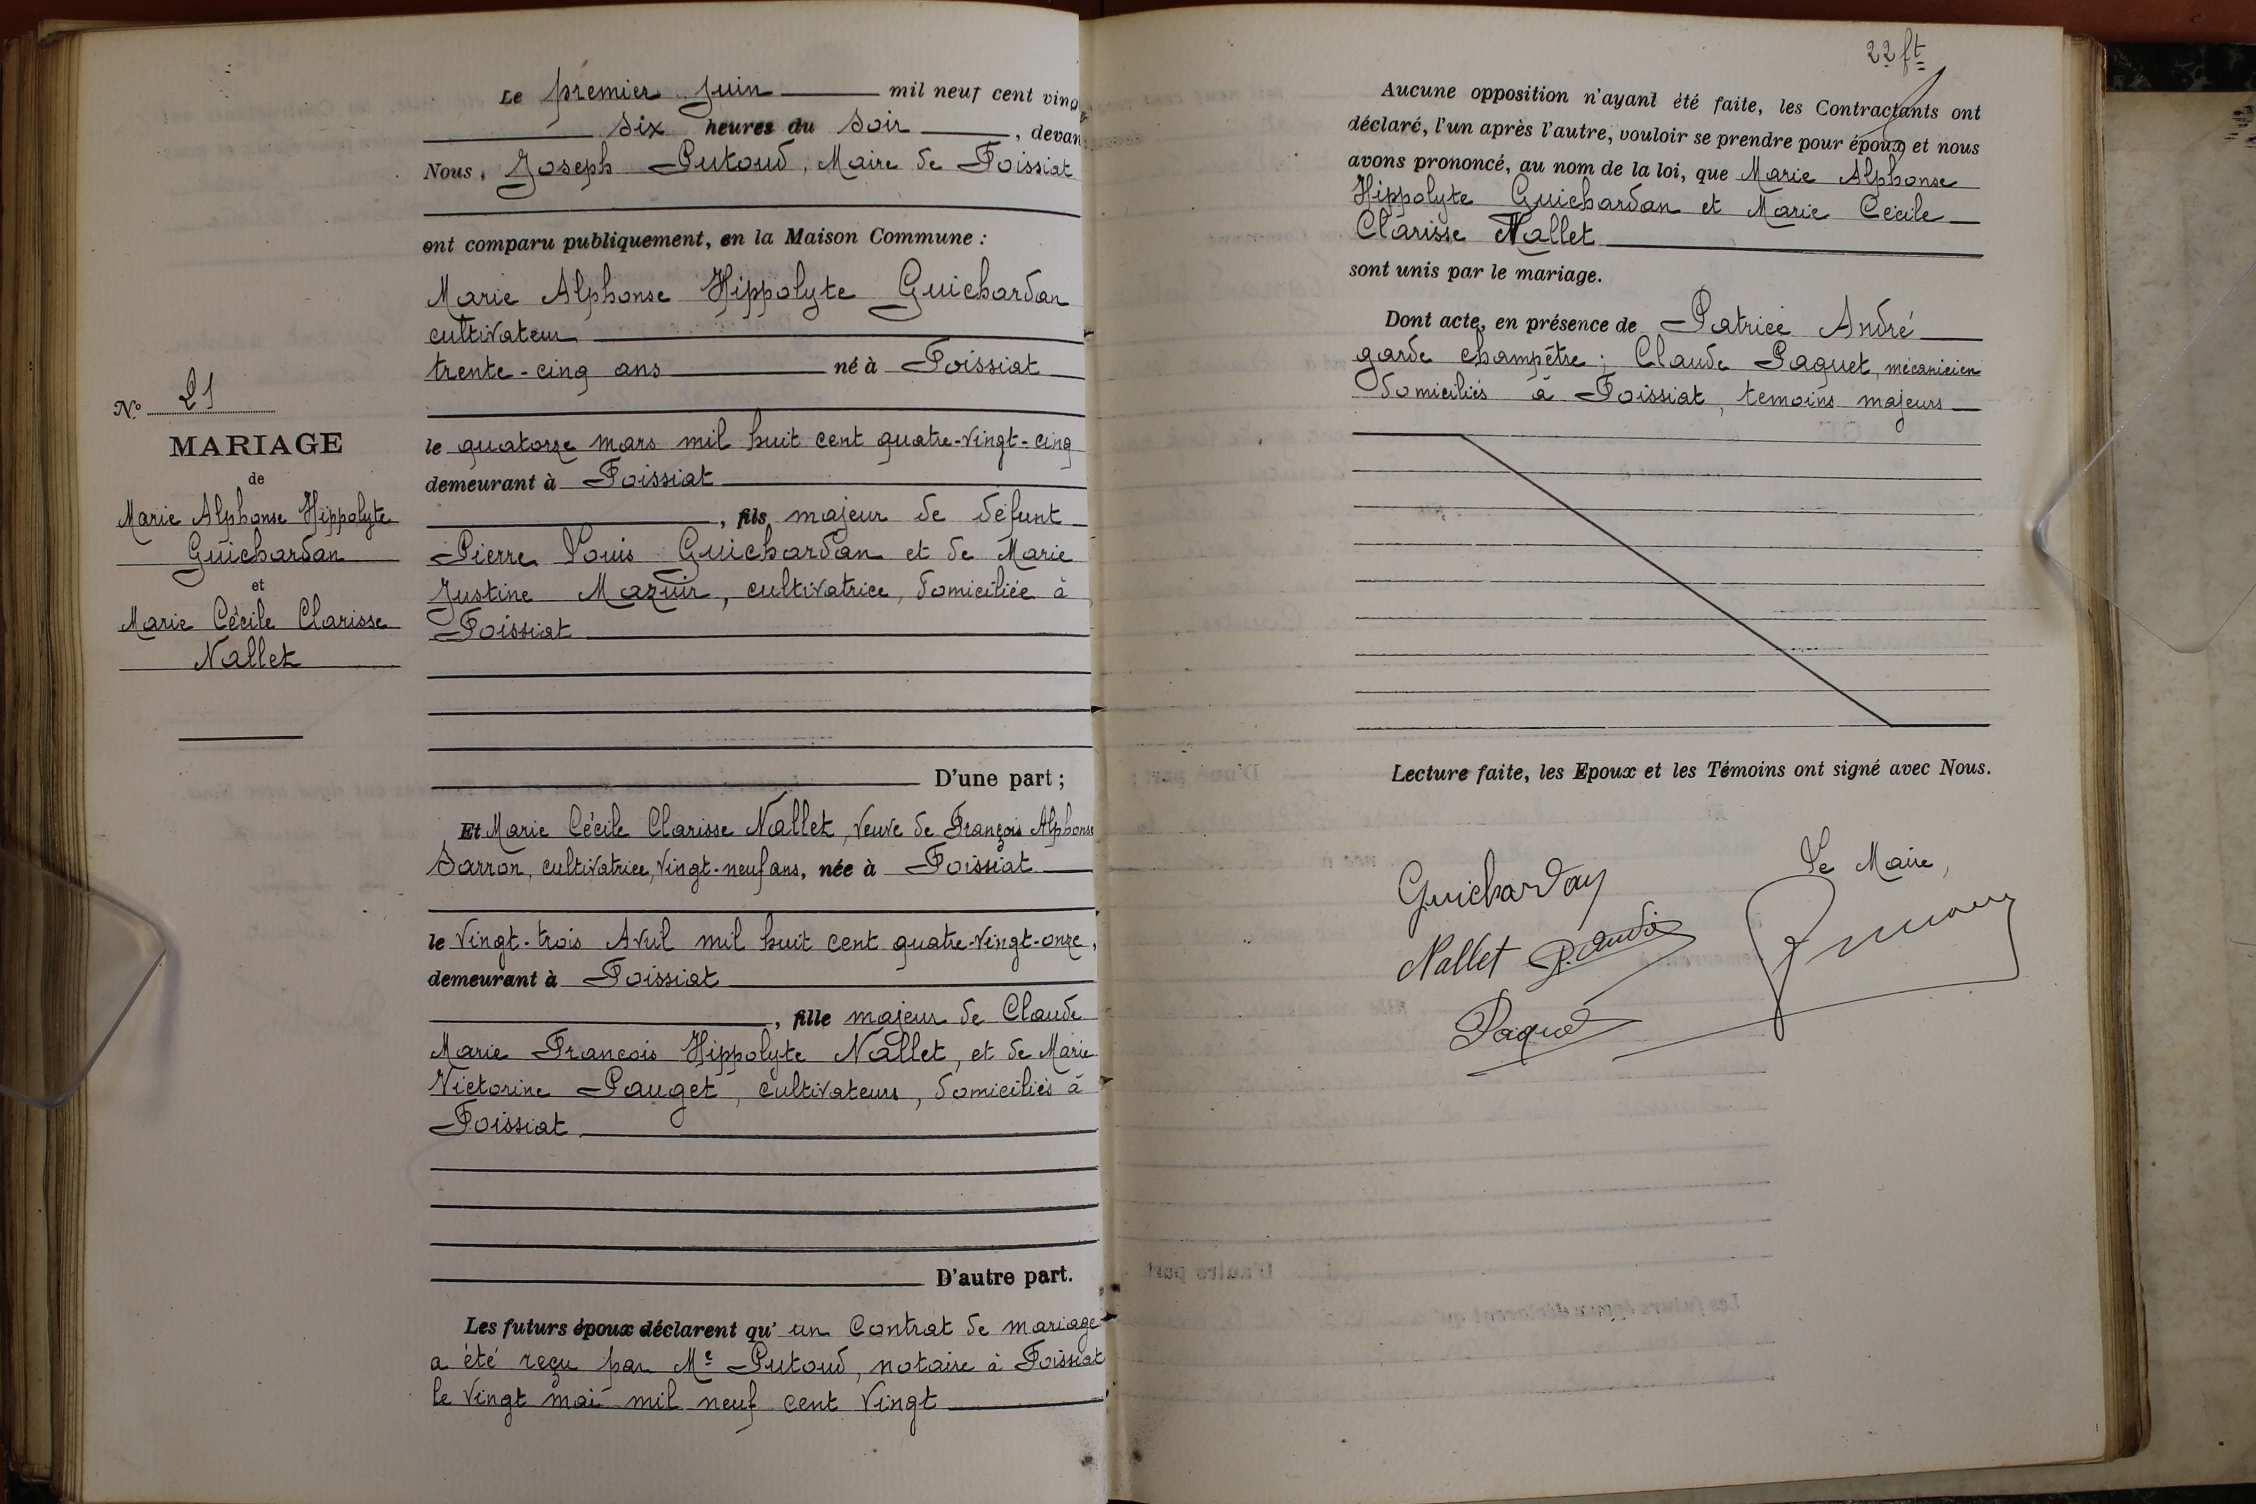 Le premier Juin mil neuf cent ving
six heures du soir, devan
Nous, Joseph Putoud, Maire de Foissiat
ont comparu publiquement, en la Maison Commune :
Marie Alphonse Hippolyte Guichardan
cultivateur
trente-cinq ans né à Foissiat
le quatorze mars mil huit cent quatre-vingt-cinq
demeurant à Foissiat
, fils majeur de défunt
Pierre Louis Guichardan et de Marie
Justine Mazuir, cultivatrice, domiciliée à
Foissiat
D'une part ;
Et Marie Cécile Clarisse Nallet, veuve de François Alphonse
Sarron, cultivatrice, vingt-neuf ans, née à Foissiat
le vingt-trois Avril mil huit cent quatre-vingt-onze,
demeurant à Foissiat
, fille majeur de Claude
Marie François Hippolyte Nallet, et de Marie
Victorine Pauget, cultivateurs, domiciliés à
Foissiat
D'autre part.
Les futurs époux déclarent qu' un Contrat de mariage
a été reçu par Me Putoud, notaire à Foissiat
le vingt mai mil neuf cent vingt
N° 21
MARIAGE
de
Marie Alphonse Hippolyte
Guichardan
et
Marie Cécile Clarisse
Nallet
22 ft
Aucune opposition n'ayant été faite, les Contractants ont
déclaré, l'un après l'autre, vouloir se prendre pour époux et nous
avons prononcé, au nom de la loi, que Marie Alphonse
Hippolyte Guichardan et Marie Cécile
Clarisse Nallet
sont unis par le mariage.
Dont acte, en présence de Patrice André
garde champêtre ; Claude Paquet, mécanicien
domiciliés à Foissiat, témoins majeurs
Lecture faite, les Epoux et les Témoins ont signé avec Nous.
Le Maire,
Guichardan
Nallet P. André
Paquet